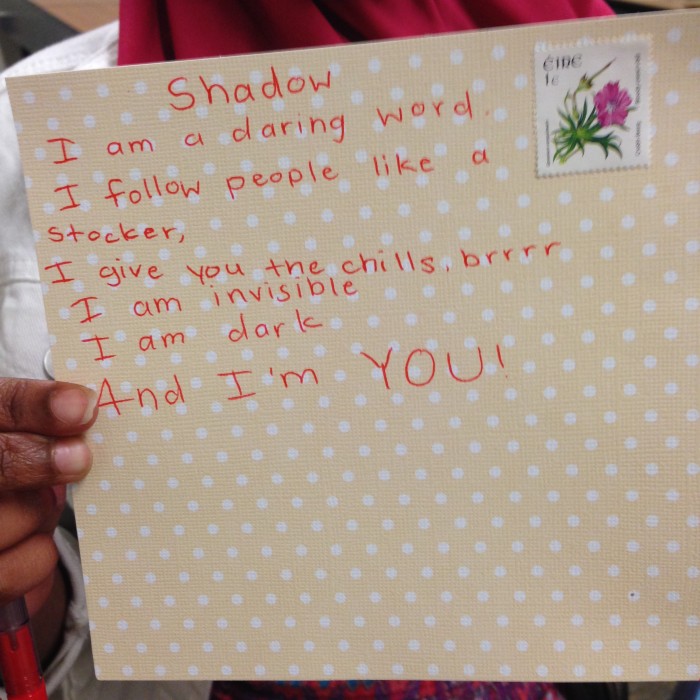 Shadow
I am a daring word.
I follow people like a
stocker,
I give you the chills, brrrr
I am invisible
I am dark
And I'm YOU!
ÉIRE
1c